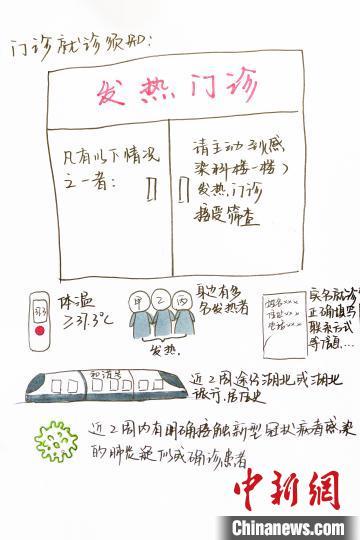 门诊就诊须别:
发热门诊
凡有以下情况
之一者:
请主动到感
染科楼一楼)
发热门诊
接受筛查
体温
≥37.3℃
甲 乙 丙
发热.
身边有多
名发热者
姓名xxx
电话xxx
实名就诊
正确填写
联系方式
等信息...
和谐号
近2周途径湖北或湖北
旅行、居住史
近2周内有明确接触新型冠状病毒感染
的肺炎疑似或确诊患者
中新網
Chinanews.com